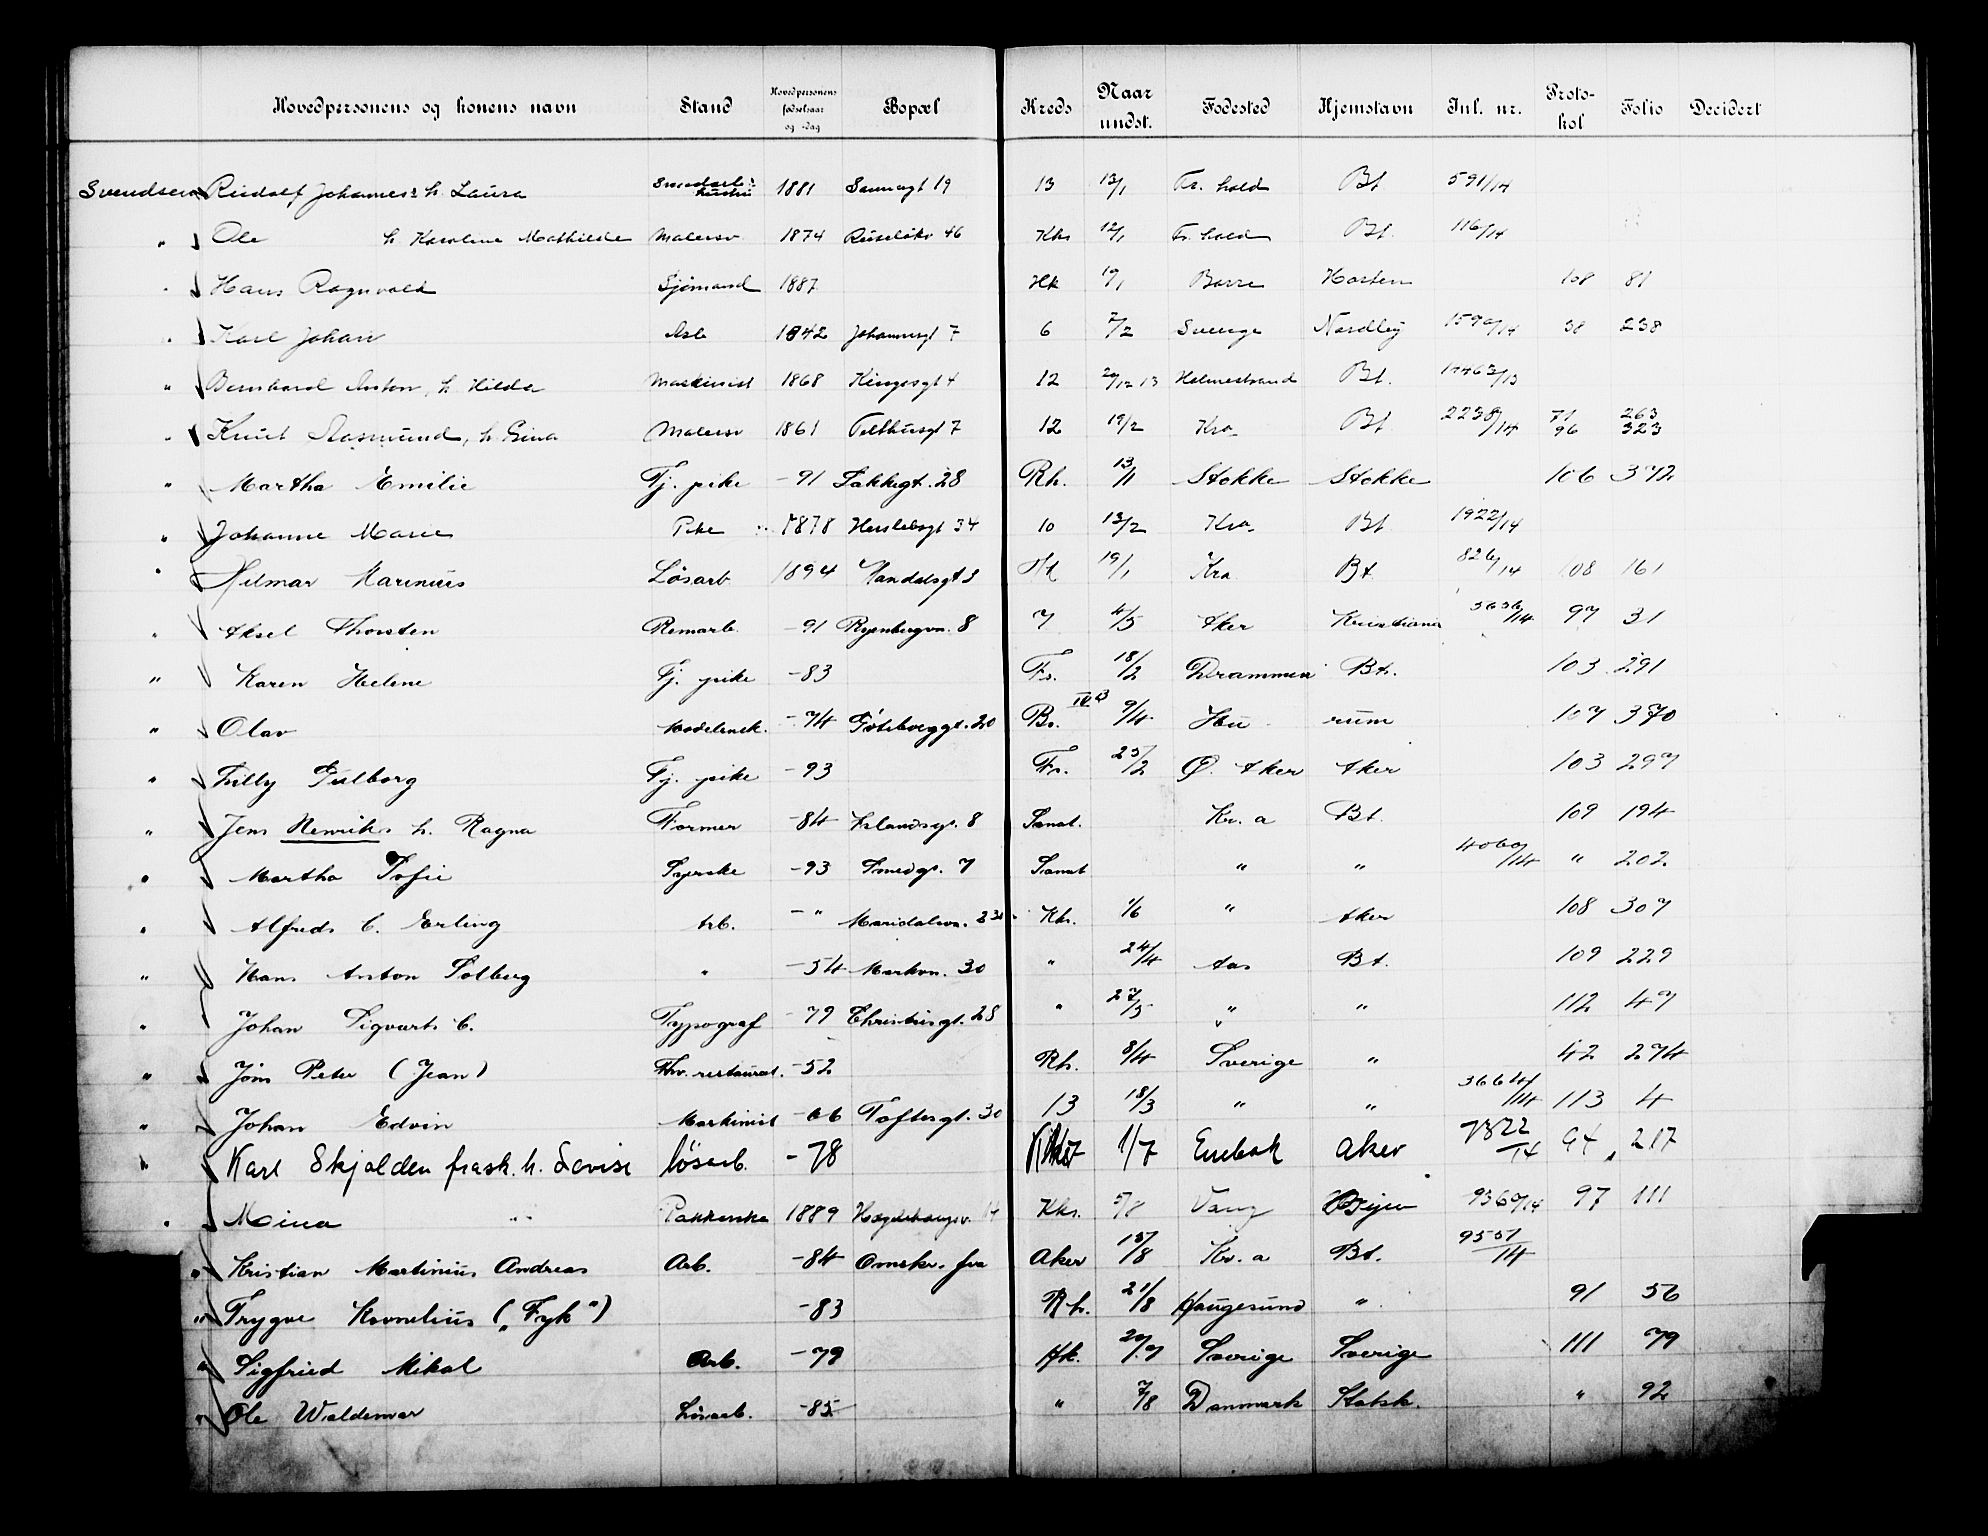 Hovedpersonens og konens navn Stand Hovedpersonens fødselsaar og -dag Bopæl Kreds Naar undst. Fødested Hjemstavn Inl. nr. Protokol Folio Decidert
Svendsen Rudolf Johannes h. Laura 1881 19 13 13/1 Fr. hald Bt 591/14
" Ole h Karoline Mathilde Malersv 1874 Ruseløkv 46 Khs 12/1 Fr. hald Bt. 116/14
" Hans Ragnvald Sjømand 1887 Hk 19/1 Borre Horten 108 81
" Karl Johan Arb 1842 Johannesgt 7 6 7/2 Sverige Nordby 38 238
" Bernhard Anton, h. Hilda Maskinist 1868 Kingosgt 4 12 20/12 13 Holmestrand Bt.
" Knut Aasmund, h. Gina Malersv 1861 Telthusgt 7 12 19/2 Kra Bt 2238/14 71 96 263 323
" Martha Emilie Tj. pike -91 Lakkegt. 28 Rh. 13/1 Stokke Stokke 106 372
" Johanne Marie Pike 1878 Herslebsgt 34 10 13/2 Kra. Bt 1922/14
" Hilmar Marinius Løsarb 1894 Mandalsgt 3 19/1 Kra Bt 826/14 108 161
" Aksel Thorsten Remarb. -91 Ryenbergvn. 8 7 4/5 Aker Kristiania 5656/14 97 31
" Karen Helene Tj. pike -83 Fr. 18/2 Drammen Bt. 103 291
" Olav Modelsnek. -74 Göteborggt. 20 Br. IV B 9/4 Hu rum 107 370
" Lilly Gulborg Tj. pike -93 Fr. 25/2 Ø. Aker Aker 103 297
" Jens Henrik h. Ragna Former -84 Islandsgt. 8 Sanat. Kr. a Bt. 109 194
" Martha Sofie Syerske -93 Smedgt. 7 Sanat " " 4060/14 " 202
" Alfred C. Erling Arb. - " Maridalsvn. Kh. 1/6 " Aker 108 307
" Hans Anton Solberg " -54 Markvn. 30 " 24/4 Aas Bt. 109 229
" Johan Sigvart C. Typograf -79 Christiesgt. 28 " 27/5 " " 112 47
" Jöns Peter (Jean) Fhv. restaurat. -52 Rh. 8/4 Sverige " 42 274
" Johan Edvin Maskinist -66 Toftesgt. 30 13 18/3 " " 3664/14 113 4
" Karl Skjalden frask. h. Lovise løsarb. -78 1/7 Enebak Aker 7822/14 94 217
" Mina Pakkerske 1889 Khs. 5/8 Vang 9360/14 97 111
" Kristian Martinius Andreas Arb. -84 Omskr. fra Aker 15/8 Kr. a Bt. 9557/14
" Trygve Kornelius („Tyk") -83 Rh. 21/8 Haugesund " 91 56
" Sigfried Mikal Arb. -79 Hk. 20/7 Sverige Sverige 111 79
" Ole Waldemar Løsarb. -85 " 7/8 Danmark Statsk. " 92